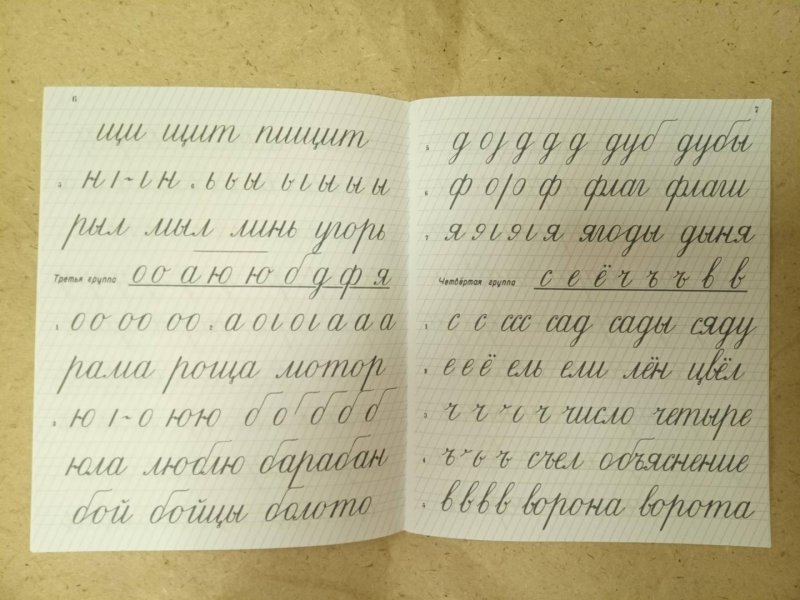 6
щи щит пищит
н ı ~ ı н . ь ы ы ы ы ы ы
рыл мыл линь угорь
Третья группа о о а ю ю б д ф я
оо оо оо . а оı оı а а а
рама роща мотор
ю ı ~ о юю б о б б б
юла люблю барабан
бой бойцы болото
7
5. д о д д д дуб дубы
6. ф о ф флаг флаги
7. я эı эı я ягоды дыня
Четвёртая группа с е ё ч ъ ъ в в
с с ссс сад сады сяду
е е ё ель ели лён цвёл
ч ч ч ч число четыре
ъ ъ ъ съел объяснение
в в в в ворона ворота